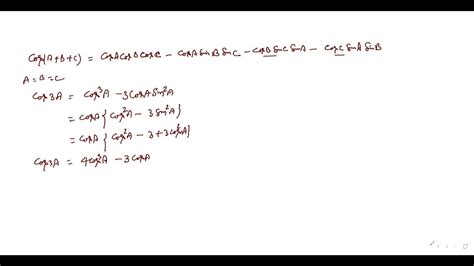 Cos(A+B+C) = CosA CosB CosC - CosA SinB SinC - CosB SinC SinA - CosC SinA SinB
A=B=C
Cos3A = Cos³A - 3CosA Sin²A
= CosA { Cos²A - 3 Sin²A }
= CosA { Cos²A - 3 + 3Cos²A }
Cos3A = 4Cos³A - 3CosA